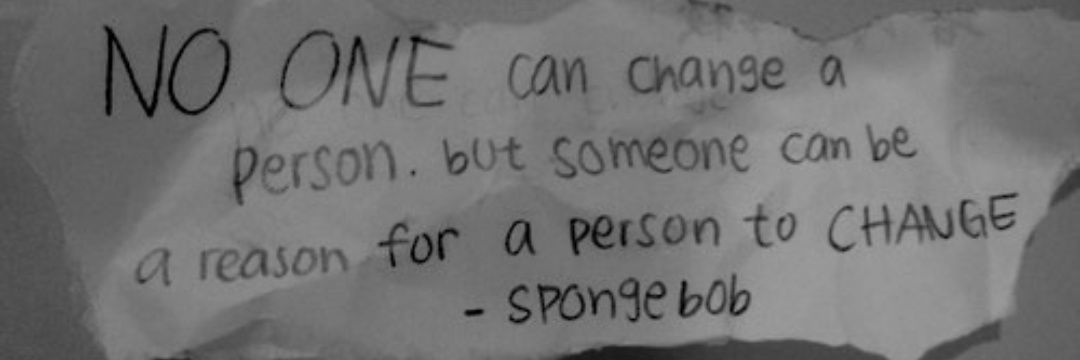 NO ONE can change a
person. but someone can be
a reason for a person to CHANGE
- spongebob